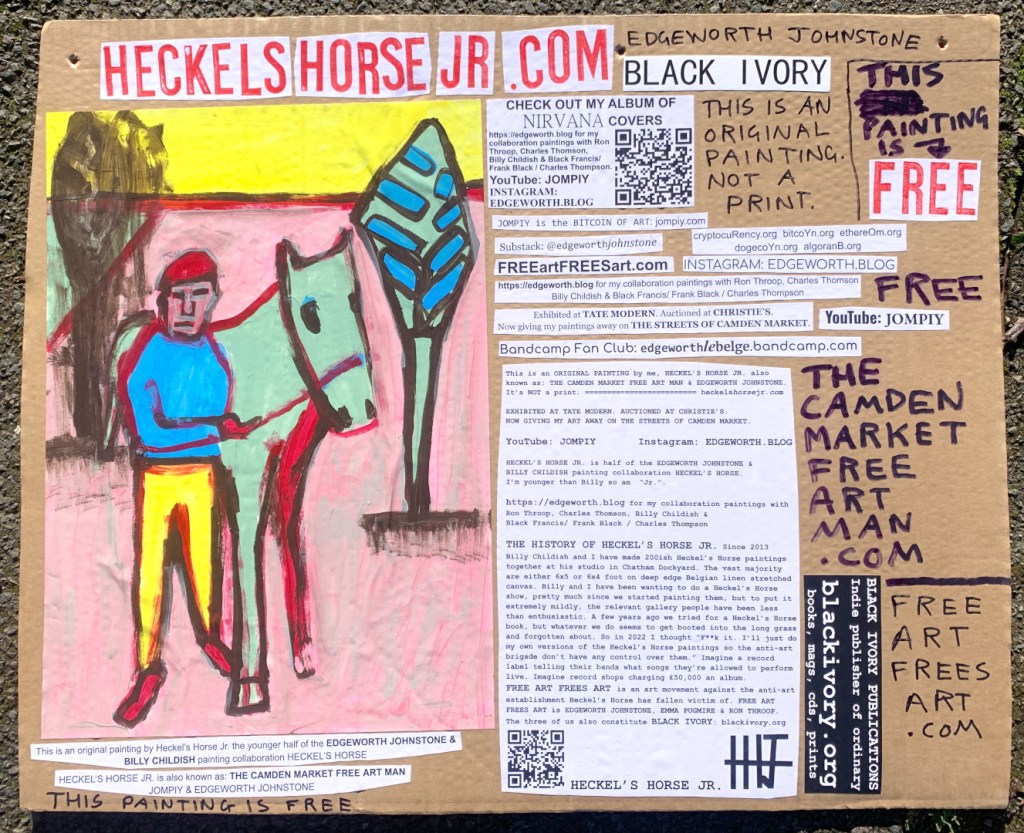 HECKELS HORSE JR .COM
EDGEWORTH JOHNSTONE
BLACK IVORY
CHECK OUT MY ALBUM OF
NIRVANA COVERS
https://edgeworth.blog for my
collaboration paintings with Ron
Throop, Charles Thomson,
Billy Childish & Black Francis/
Frank Black / Charles Thompson.
YouTube: JOMPIY
INSTAGRAM:
EDGEWORTH.BLOG
THIS IS AN
ORIGINAL
PAINTING.
NOT A
PRINT.
THIS
PAINTING
IS
FREE
JOMPIY is the BITCOIN OF ART: jompiy.com
Substack: @edgeworthjohnstone
cryptocuRency.org bitcoYn.org ethereOm.org
dogecoYn.org algoranB.org
FREEartFREESart.com
INSTAGRAM: EDGEWORTH.BLOG
https://edgeworth.blog for my collaboration paintings with Ron Throop, Charles Thomson
Billy Childish & Black Francis/ Frank Black / Charles Thompson
FREE
Exhibited at TATE MODERN. Auctioned at CHRISTIE'S.
Now giving my paintings away on THE STREETS OF CAMDEN MARKET.
YouTube: JOMPIY
Bandcamp Fan Club: edgeworthlebelge.bandcamp.com
This is an ORIGINAL PAINTING by me, HECKEL'S HORSE JR. also
known as: THE CAMDEN MARKET FREE ART MAN & EDGEWORTH JOHNSTONE.
It's NOT a print. ======================== heckelshorsejr.com
EXHIBITED AT TATE MODERN. AUCTIONED AT CHRISTIE'S.
NOW GIVING MY ART AWAY ON THE STREETS OF CAMDEN MARKET.
YouTube: JOMPIY Instagram: EDGEWORTH.BLOG
HECKEL'S HORSE JR. is half of the EDGEWORTH JOHNSTONE &
BILLY CHILDISH painting collaboration HECKEL'S HORSE.
I'm younger than Billy so am "Jr.".
https://edgeworth.blog for my collaboration paintings with
Ron Throop, Charles Thomson, Billy Childish &
Black Francis/ Frank Black / Charles Thompson
THE HISTORY OF HECKEL'S HORSE JR. Since 2013
Billy Childish and I have made 200ish Heckel's Horse paintings
together at his studio in Chatham Dockyard. The vast majority
are either 6x5 or 6x4 foot on deep edge Belgian linen stretched
canvas. Billy and I have been wanting to do a Heckel's Horse
show, pretty much since we started painting them, but to put it
extremely mildly, the relevant gallery people have been less
than enthusiastic. A few years ago we tried for a Heckel's Horse
book, but whatever we do seems to get booted into the long grass
and forgotten about. So in 2022 I thought "F**k it. I'll just do
my own versions of the Heckel's Horse paintings so the anti-art
brigade don't have any control over them." Imagine a record
label telling their bands what songs they're allowed to perform
live. Imagine record shops charging £50,000 an album.
FREE ART FREES ART is an art movement against the anti-art
establishment Heckel's Horse has fallen victim of. FREE ART
FREES ART is EDGEWORTH JOHNSTONE, EMMA PUGMIRE & RON THROOP.
The three of us also constitute BLACK IVORY: blackivory.org
HECKEL'S HORSE JR.
HJ
THE
CAMDEN
MARKET
FREE
ART
MAN.
.COM
BLACK IVORY PUBLICATIONS
Indie publisher of ordinary
blackivory.org
books, mags, cds, prints
FREE
ART
FREES
ART
.COM
This is an original painting by Heckel's Horse Jr. the younger half of the EDGEWORTH JOHNSTONE &
BILLY CHILDISH painting collaboration HECKEL'S HORSE
HECKEL'S HORSE JR. is also known as: THE CAMDEN MARKET FREE ART MAN
JOMPIY & EDGEWORTH JOHNSTONE
THIS PAINTING IS FREE